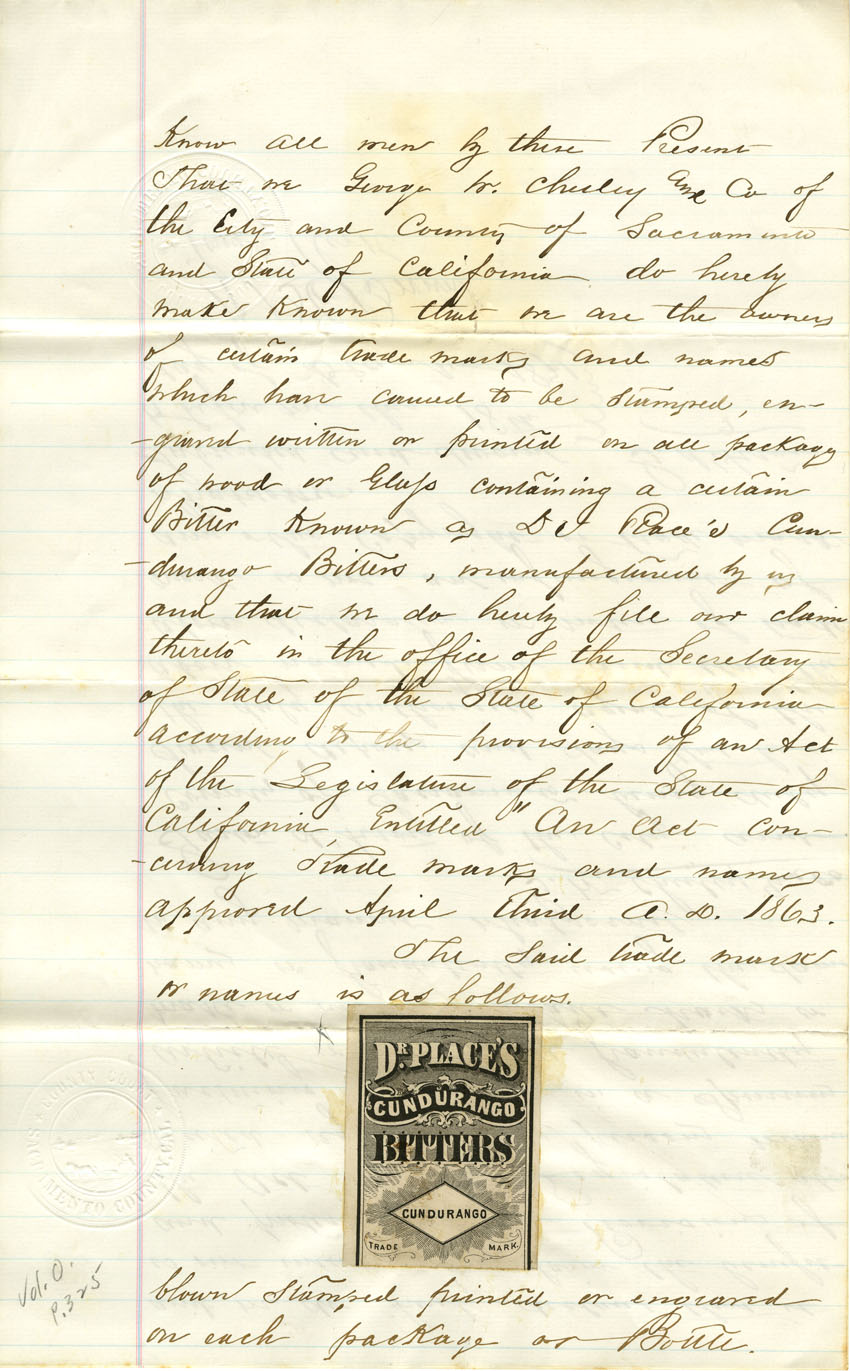 Know all men by these Present
That we George W. Chesley and Co of
the City and County of Sacramento
and State of California do hereby
make Known that we are the owners
of certain trade marks and names
which have caused to be stamped, en-
-graved written or printed on all packages
of wood or Glass containing a certain
Bitter Known as Dr Place's Cun-
-durango Bitters, manufactured by us
and that we do hereby file our claim
thereto in the office of the Secretary
of State of the State of California
according to the provisions of an Act
of the Legislature of the State of
California, Entitled "An Act con-
-cerning Trade marks and names
approved April Third A. D. 1863.
The Said trade mark
or names is as follows.
DR. PLACE'S
CUNDURANGO
BITTERS
CUNDURANGO
TRADE MARK.
COUNTY COURT
SACRAMENTO COUNTY, CAL.
Vol. O.
P. 325
blown stamped printed or engraved
on each package or Bottle.